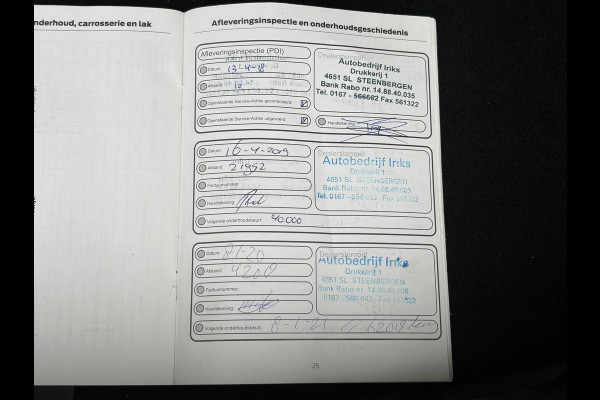 nderhoud, carrosserie en lak
Afleveringsinspectie en onderhoudsgeschiedenis
Afleveringsinspectie (PDI)
Datum: 13-4-18
Afstand: 10
Openstaande Service-Acties gecontroleerd:
Openstaande Service-Acties uitgevoerd:
Dealerstempel
Autobedrijf Iriks
Drukkerij 1
4651 SL STEENBERGEN
Bank Rabo nr. 14.88.40.035
Tel. 0167 - 566662 Fax 561322
Handtekening:
Datum: 16-4-2019
Afstand: 21992
Factuurnummer:
Handtekening:
Volgende onderhoudsbeurt: 40.000
Dealerstempel
Autobedrijf Iriks
Drukkerij 1
4651 SL STEENBERGEN
Bank Rabo nr. 14.88.40.035
Tel. 0167 - 566662 Fax 561322
Datum: 8-1-20
Afstand: 4200
Factuurnummer:
Handtekening:
Volgende onderhoudsbeurt: 8-1-21 //
Dealerstempel
Autobedrijf Iriks
Drukkerij 1
4651 SL STEENBERGEN
Bank Rabo nr. 14.88.40.035
0167 - 566 662 Fax 561322
25